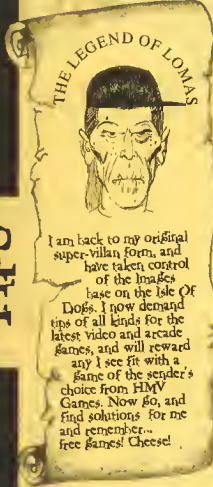 THE LEGEND OF LOMAS
I am back to my original
super-villan form, and
have taken control
of the Images
base on the Isle Of
Dogs. I now demand
tips of all kinds for the
latest video and arcade
games, and will reward
any I see fit with a
game of the sender's
choice from HMV
Games. Now go, and
find solutions for me
and remember...
free games! Cheese!